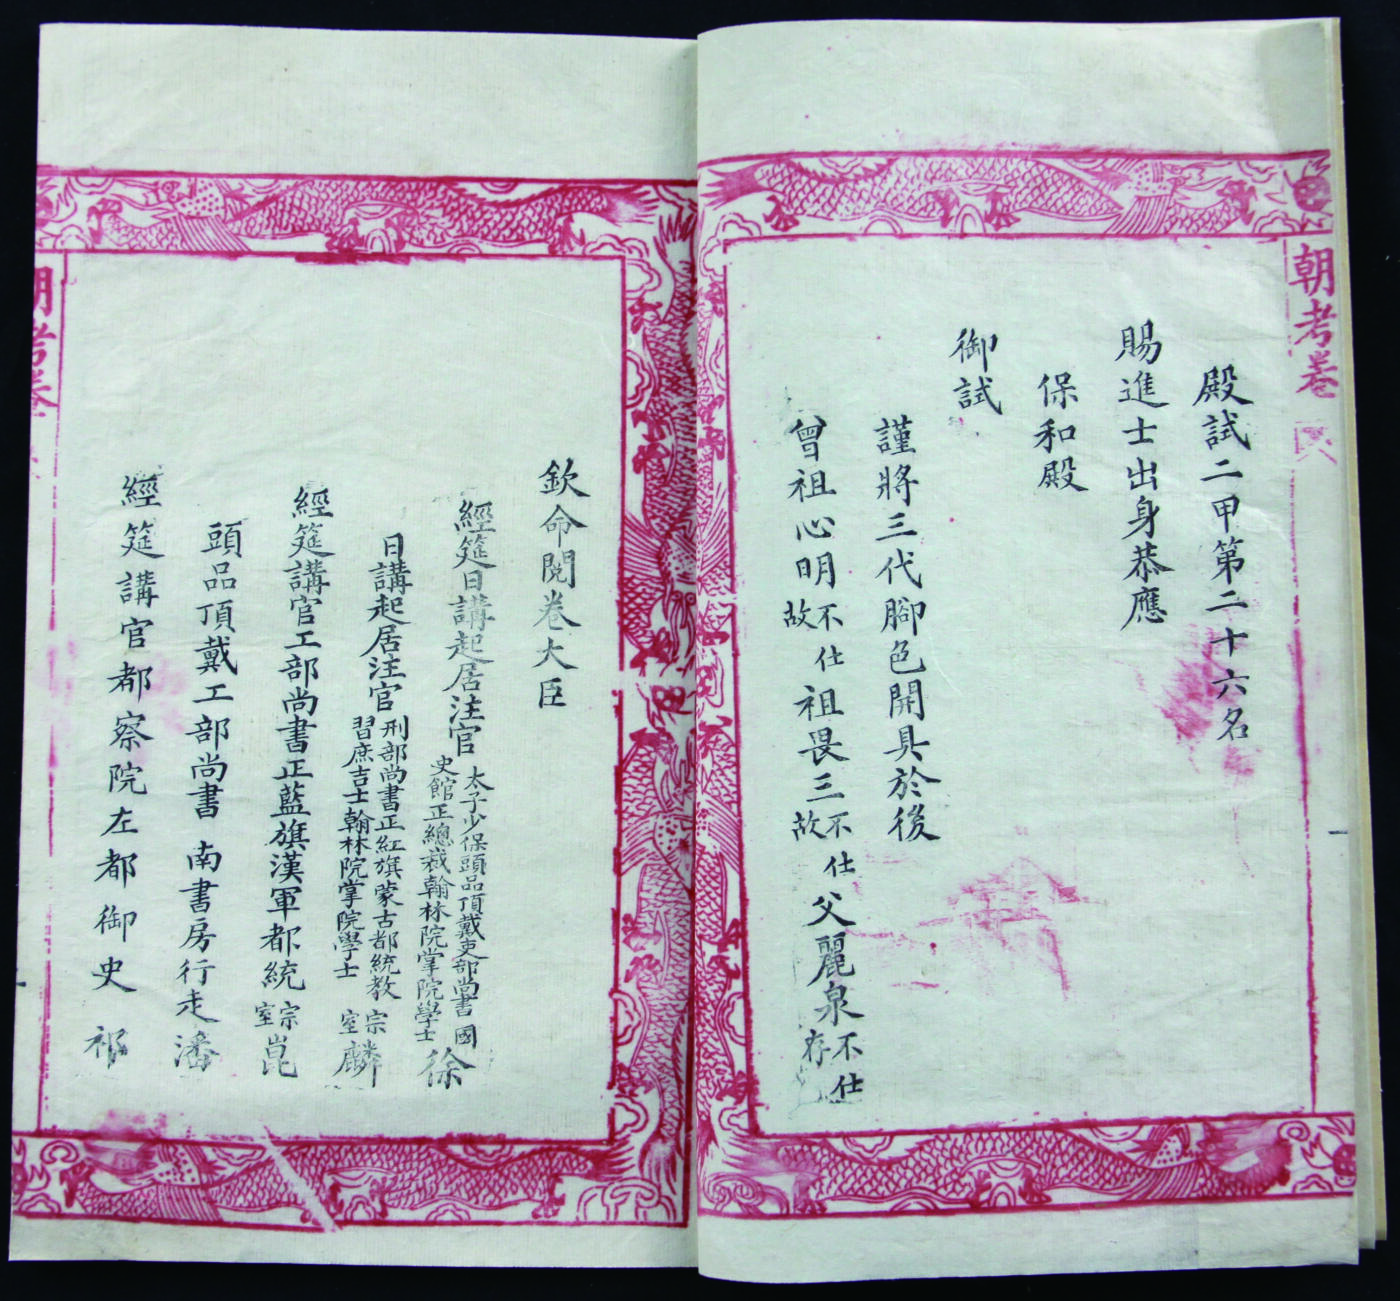 朝考卷
殿試二甲第二十六名
賜進士出身恭應
保和殿
御試
謹將三代腳色開具於後
曾祖心明不仕故祖畏三不仕故父麗泉不仕存
欽命閱卷大臣
經筵日講起居注官太子少保頭品頂戴吏部尚書國史館正總裁翰林院掌院學士徐
日講起居注官刑部尚書正紅旗蒙古都統教習庶吉士翰林院掌院學士宗室麟
經筵講官工部尚書正藍旗漢軍都統宗室崑
頭品頂戴工部尚書南書房行走潘
經筵講官都察院左都御史祁
朝考卷